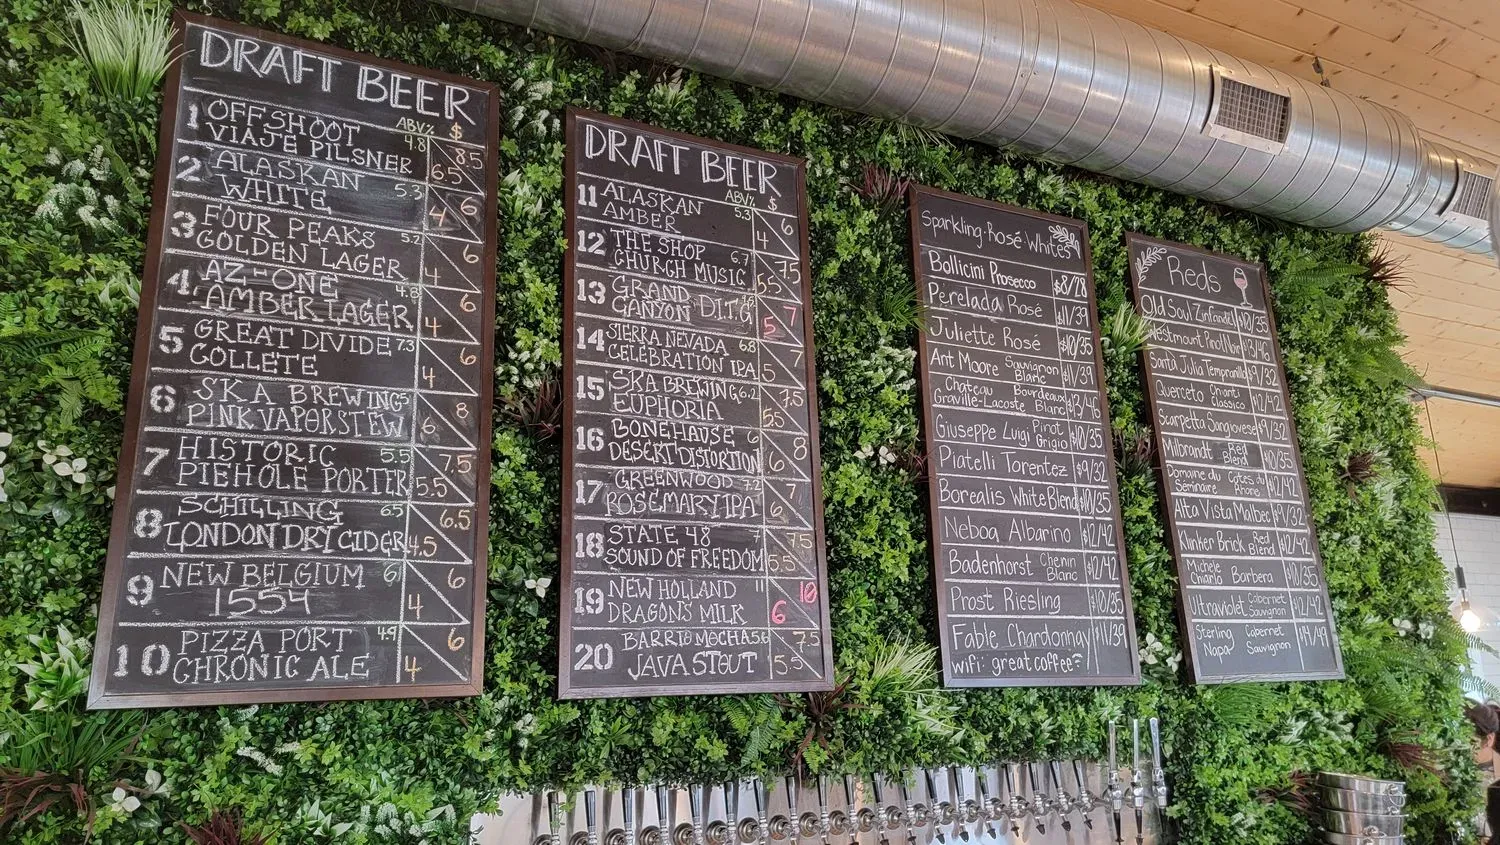 DRAFT BEER
ABV% $
1 OFFSHOOT 4.8 8.5
VIAJE PILSNER 6.5
2 ALASKAN 5.3 6
WHITE 4
3 FOUR PEAKS 5.2 6
GOLDEN LAGER 4
4 AZ-ONE 4.8 6
AMBER LAGER 4
5 GREAT DIVIDE 7.3 6
COLLETE 4
6 SKA BREWING 5 8
PINK VAPORSTEW 6
7 HISTORIC 5.5 7.5
PIEHOLE PORTER 5.5
8 SCHILLING 6.5 6.5
LONDON DRY CIDER 4.5
9 NEW BELGIUM 6 6
1554 4
10 PIZZA PORT 4.9 6
CHRONIC ALE 4
DRAFT BEER
ABV% $
11 ALASKAN 5.3 6
AMBER 4
12 THE SHOP 6.7 7.5
CHURCH MUSIC 5.5
13 GRAND 7
CANYON D.I.T.G 5
14 SIERRA NEVADA 6.8 7
CELEBRATION IPA 5
15 SKA BREWING 6.2 7.5
EUPHORIA 5.5
16 BONEHAUSE 6 8
DESERT DISTORTION 6
17 GREENWOOD 7.2 7
ROSEMARY IPA 6
18 STATE 48 7 7.5
SOUND OF FREEDOM 5.5
19 NEW HOLLAND 11 10
DRAGONS MILK 6
20 BARRIO MOCHA 5.6 7.5
JAVA STOUT 5.5
Sparkling·Rosé·Whites
Bollicini Prosecco $8/28
Perelada Rosé $11/39
Juliette Rosé $10/35
Ant Moore Sauvignon Blanc $11/39
Chateau Graville-Lacoste Bourdeaux Blanc $13/46
Giuseppe Luigi Pinot Grigio $10/35
Piatelli Torentez $9/32
Borealis White Blend $10/35
Neboa Albarino $12/42
Badenhorst Chenin Blanc $12/42
Prost Riesling $10/35
Fable Chardonnay $11/39
wifi: great coffee?
Reds
Old Soul Zinfandel $10/35
Westmount Pinot Noir $13/46
Santa Julia Tempranillo $9/32
Querceto Chianti Classico $12/42
Scarpetta Sangiovese $9/32
Milbrandt Red Blend $10/35
Domaine du Séminaire Cotes du Rhone $12/42
Alta Vista Malbec $9/32
Klinker Brick Red Blend $12/42
Michele Chiarlo Barbera $10/35
Ultraviolet Cabernet Sauvignon $12/42
Sterling Napa Cabernet Sauvignon $14/49